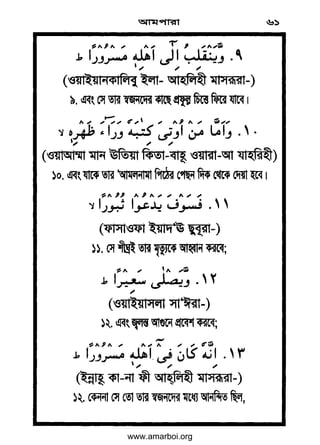 আমপারা ৬১
٩. وَّيَنْقَلِبُ اِلٰٓى اَهْلِهٖ مَسْرُوْرًا ط
(ওয়াইয়ানকালিবু ইলা- আহলিহী মাসরূরা-)
৯. এবং সে তার স্বজনদের কাছে প্রফুল্ল চিত্তে ফিরে যাবে।
١٠. وَاَمَّا مَنْ اُوْتِىَ كِتٰبَهٗ وَرَآءَ ظَهْرِهٖ لا
(ওয়াআম্মা মান ঊতিয়া কিতা-বাহূ ওয়ারা-আ যাহরিহী)
১০. এবং যাকে তার 'আমলনামা পিঠের পেছন দিক থেকে দেয়া হবে।
١١. فَسَوْفَ يَدْعُوْا ثُبُوْرًا لا
(ফাসাওফা ইয়াদ'ঊ ছুবূরা-)
১১. সে শীঘ্রই তার মৃত্যুকে আহ্বান করবে;
١٢. وَّيَصْلٰى سَعِيْرًا ط
(ওয়াইয়াসলা সা'ঈরা-)
১২. এবং জ্বলন্ত আগুনে প্রবেশ করবে;
١٣. اِنَّهٗ كَانَ فِىْٓ اَهْلِهٖ مَسْرُوْرًا ط
(ইন্নাহূ কা-না ফী আহলিহী মাসরূরা-)
১২. কেননা সে তো তার স্বজনদের মধ্যে আনন্দিত ছিল,
www.amarboi.org